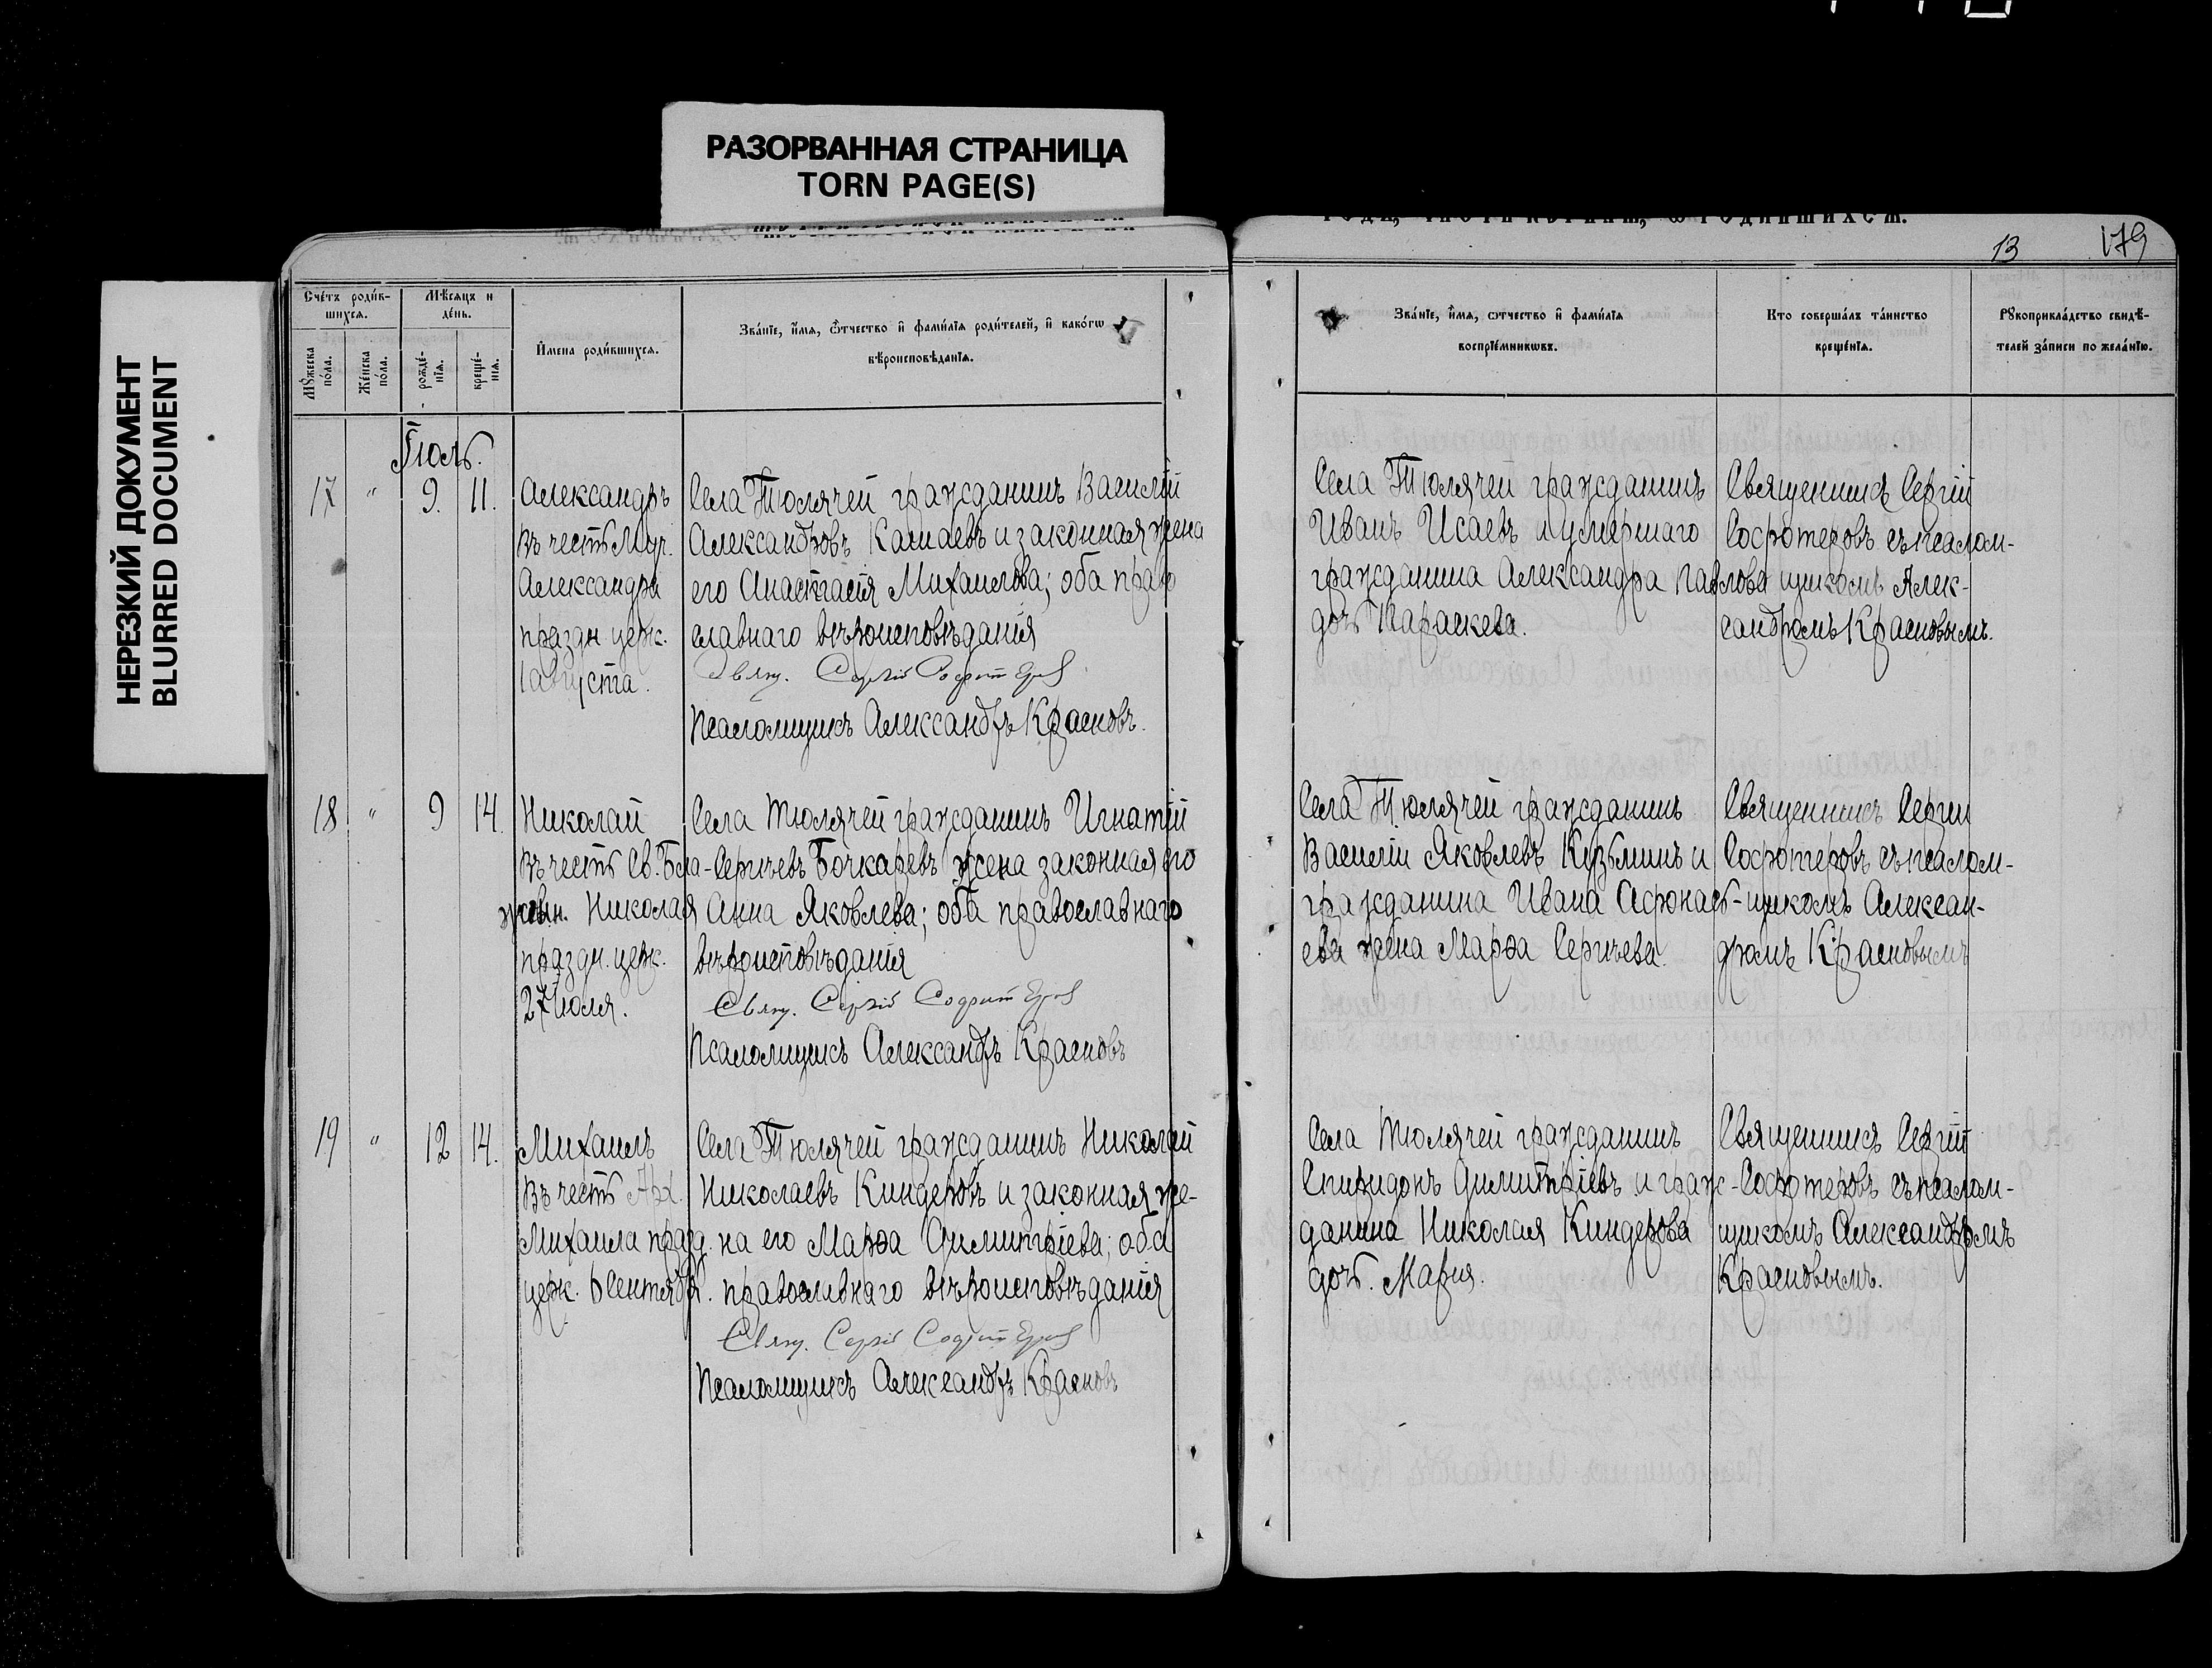 РАЗОРВАННАЯ СТРАНИЦА
TORN PAGE(S)
НЕРЕЗКИЙ ДОКУМЕНТ
BLURRED DOCUMENT
13
179
Счетъ родив-
шихся.
Мѣсяцъ и
день.
Мужеска
пола.
Женска
пола.
рожде-
нія.
креще-
нія.
Имена родившихся.
Званіе, имя, отчество и фамилія родителей, и какого
вѣроисповѣданія.
Званіе, имя, отчество и фамилія
воспріемниковъ.
Кто совершалъ таинство
крещенія.
Рукоприкладство свидѣ-
телей записи по желанію.
Іюль.
17 " 9. 11.
Александръ
въ честь Муч.
Александра
праздн церк.
1 августа.
Села Тюлячей гражданинъ Василій
Александровъ и законная жена
его Анастасія Михаилова; оба право
славнаго вѣроисповѣданія
Свящ. Сергій Софотеровъ
Псаломщикъ Александръ Красновъ.
Села Тюлячей гражданинъ
Иванъ Исаевъ и умершаго
гражданина Александра Павлова
дочь Параскева.
Священникъ Сергій
Софотеровъ съ псалом-
щикомъ Алек-
сандромъ Красновымъ.
18 " 9 14.
Николай
въ честь Св. Бла-
женн. Николая
праздн. церк.
27 Іюля.
Села Тюлячей гражданинъ Игнатій
Сергѣевъ Бочкаревъ жена законная его
Анна Яковлева; оба православнаго
вѣроисповѣданія
Свящ. Сергій Софотеровъ
Псаломщикъ Александръ Красновъ
Села Тюлячей гражданинъ
Василій Яковлевъ Кузьминъ и
гражданина Ивана Афонась-
ева жена Марѳа Сергѣева.
Священникъ Сергій
Софотеровъ съ псалом-
щикомъ Алексан-
дромъ Красновымъ
19 " 12 14.
Михаилъ
въ честь Арх.
Михаила празд.
церк. 6 Сентября.
Села Тюлячей гражданинъ Николай
Николаевъ Киндеровъ и законная же-
на его Марѳа Димитріева; оба
православнаго вѣроисповѣданія
Свящ. Сергій Софотеровъ
Псаломщикъ Александръ Красновъ
Села Тюлячей гражданинъ
Спиридонъ Димитріевъ и граж-
данина Николая Киндерова
дочь. Марія.
Священникъ Сергій
Софотеровъ съ псалом-
щикомъ Александромъ
Красновымъ.